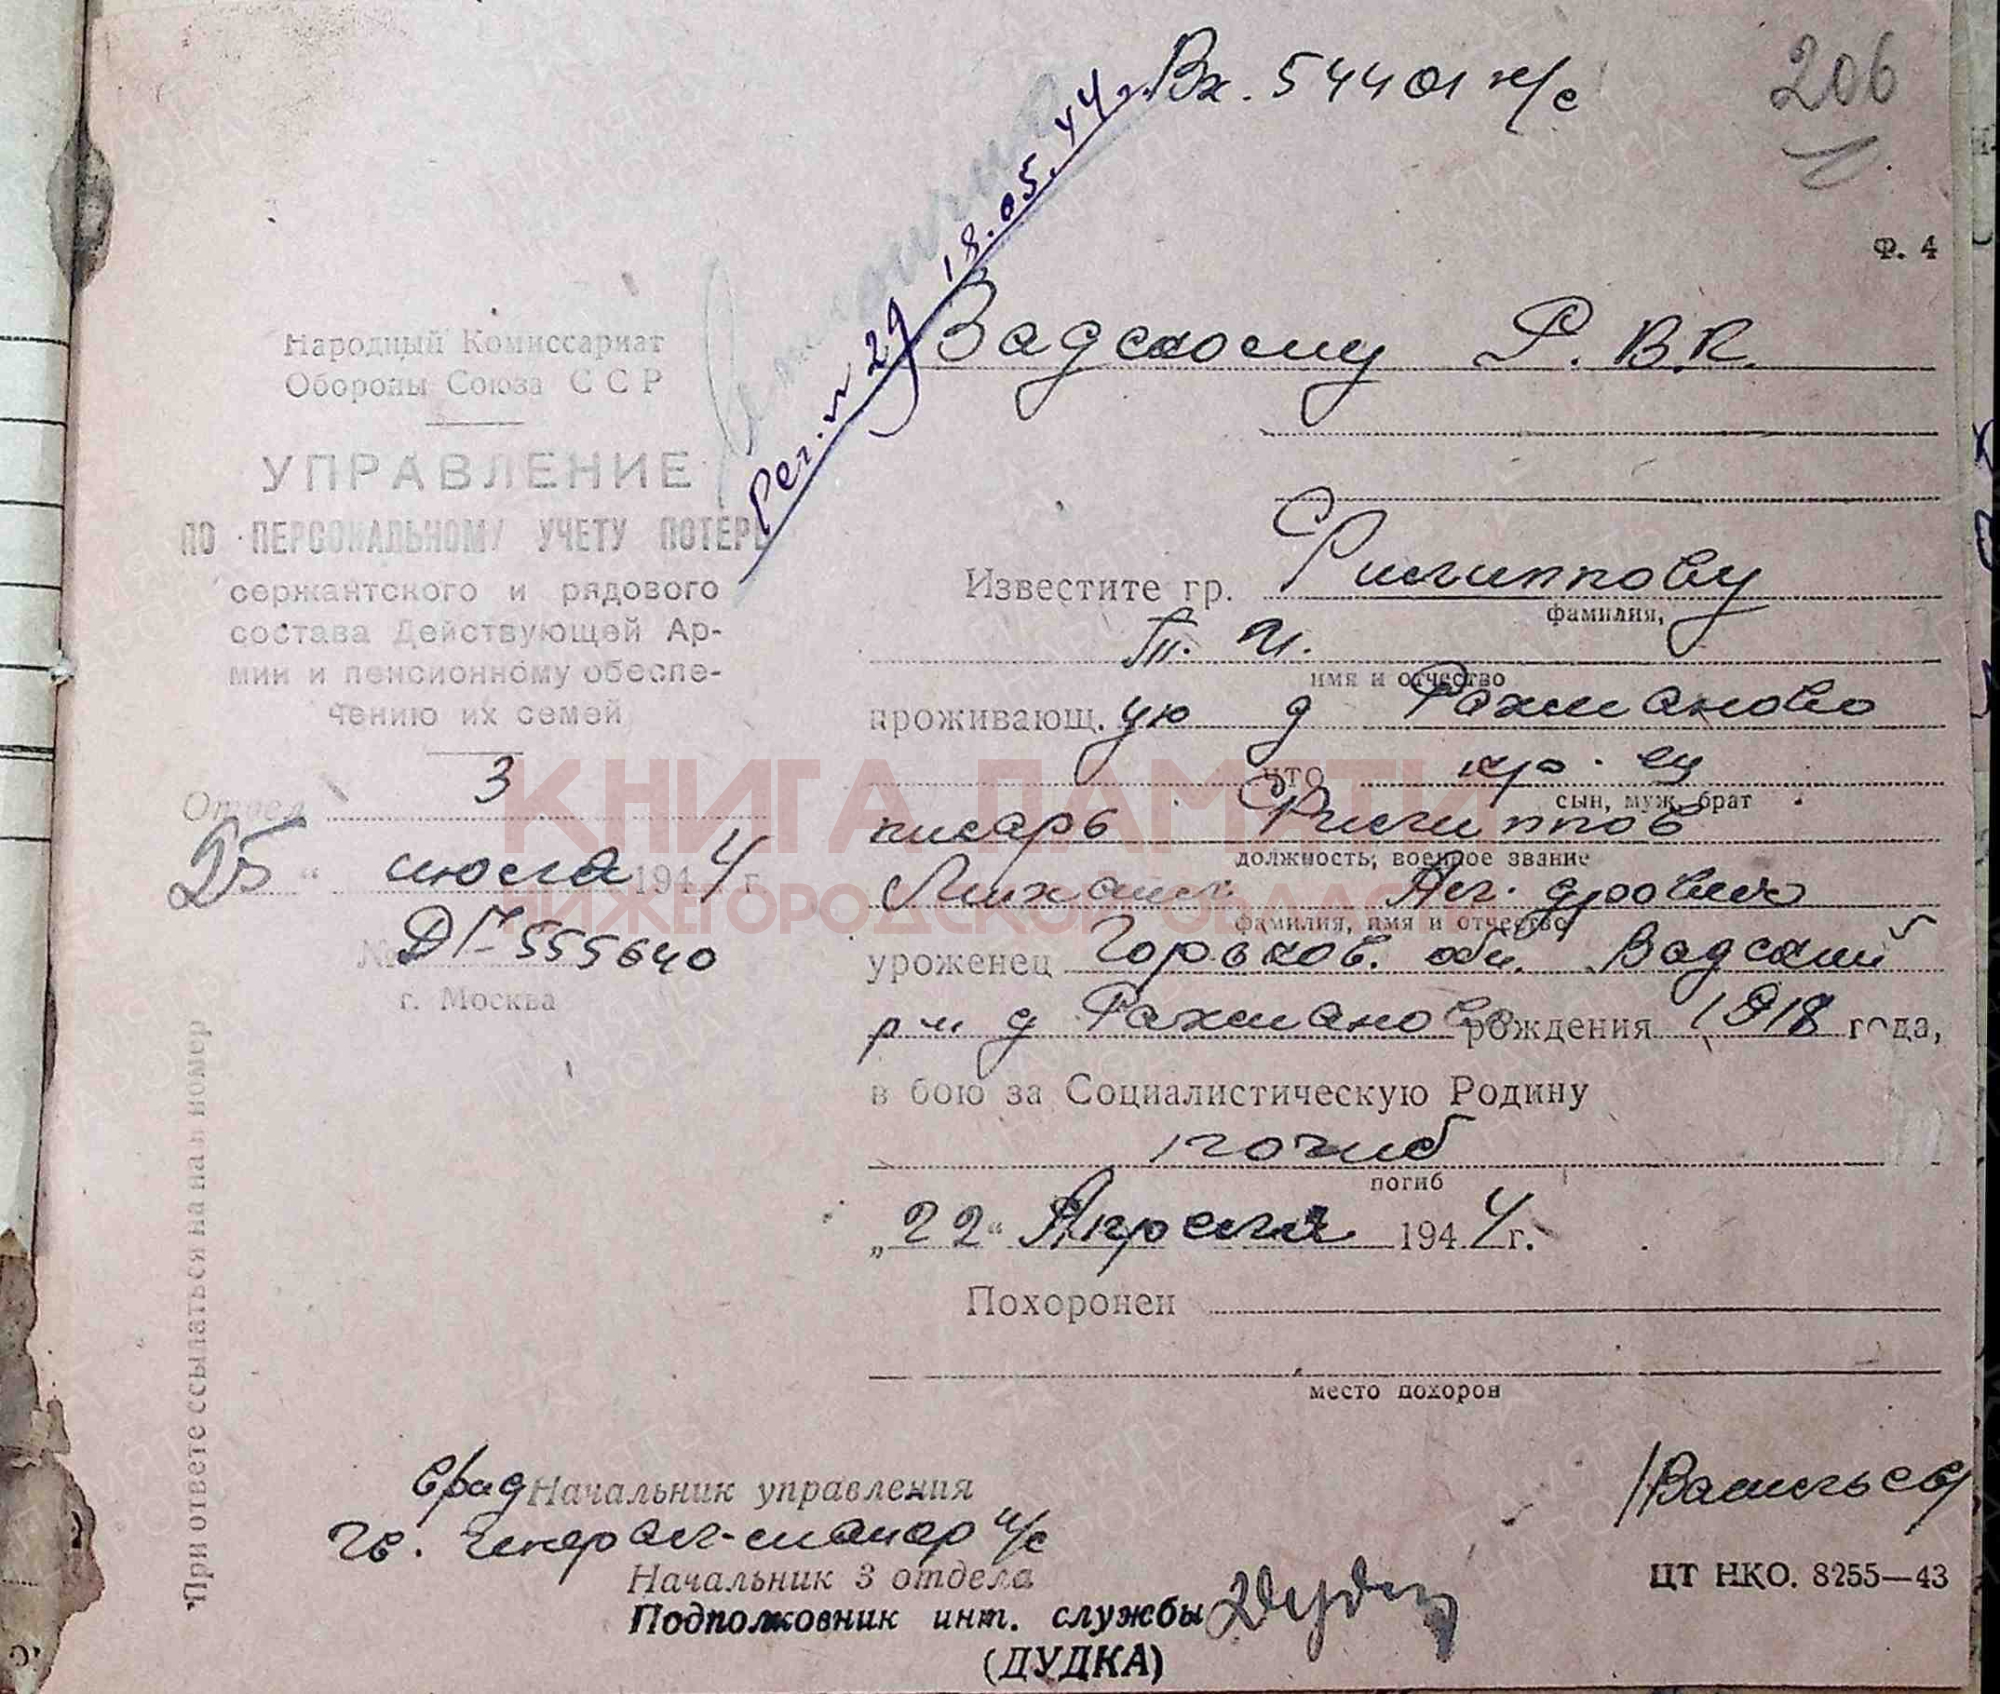 Вх. 54401 н/с
206
Рег. № 29 18.05.44 г.
Ф. 4
Народный Комиссариат
Обороны Союза ССР
УПРАВЛЕНИЕ
ПО ПЕРСОНАЛЬНОМУ УЧЕТУ ПОТЕРЬ
сержантского и рядового
состава Действующей Ар-
мии и пенсионному обеспе-
чению их семей
Отдел 3
25 " июля 1944 г.
№ ДП-555640
г. Москва
При ответе ссылаться на наш номер
Вадскому Р.В.К.
Известите гр. Филиппову
фамилия,
П. И.
имя и отчество
проживающ. ую д Рахманово
что кр-ец
сын, муж, брат
писарь Филиппов
должность, военное звание
Михаил Ал-дрович
фамилия, имя и отчество
уроженец Горьков. обл. Вадский
р-н д Рахманово рождения 1918 года,
в бою за Социалистическую Родину
погиб
погиб
„22" Апреля 1944 г.
Похоронен
место похорон
КНИГА ПАМЯТИ
НИЖЕГОРОДСКОЙ ОБЛАСТИ
Начальник управления
гв. генерал-майор и/с
/Васильев/
Начальник 3 отдела
Подполковник инт. службы
(ДУДКА)
ЦТ НКО. 8255—43